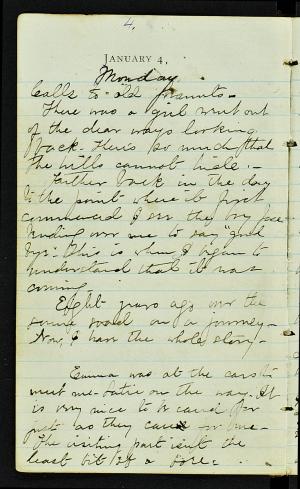 4.
JANUARY 4,
Monday
Calls to old
There was a girl went out
of the dear ways looking
back. There's so much that
the hills cannot hide. -
Farther back in the day
is the point where it first
commenced I saw the boy face
bending over me to say "good
bye". This is when I began to
understand that it was
coming.
Eight years ago over the
same road on a journey -
Now, I have the whole story -
Emma was at the cars to
meet me - Satie on the way. It
is very nice to be cared for
just as they care for me -
The visiting part isn't the
least bit of a bore.